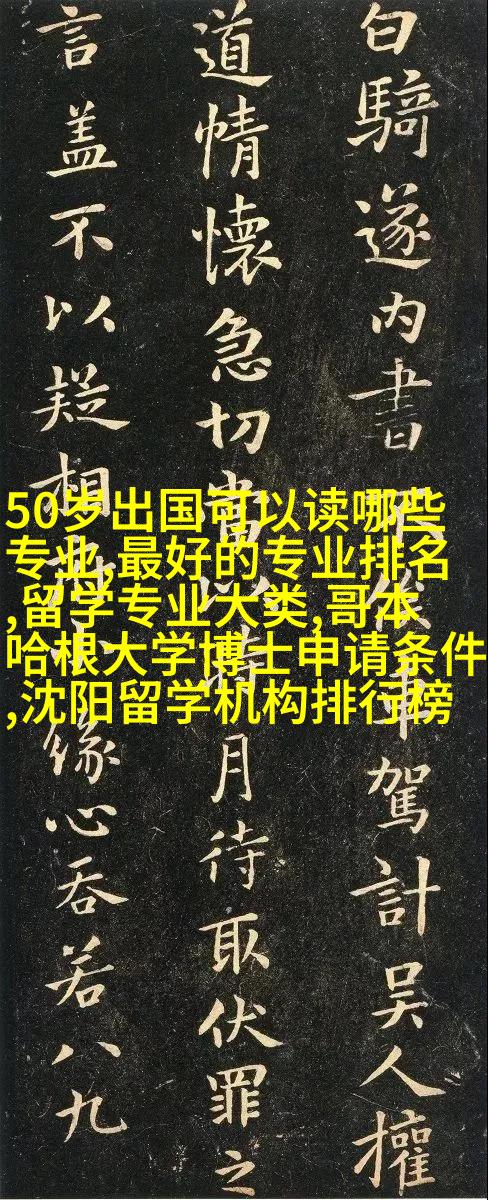 白騎遂內書不俟車駕計吳人權
道情懷急切當以時月待取伏罪之
言盖不以疑相緣心吞若八九
50岁出国可以读哪些
专业,最好的专业排名
,留学专业大类,哥本
哈根大学博士申请条件
,沈阳留学机构排行榜